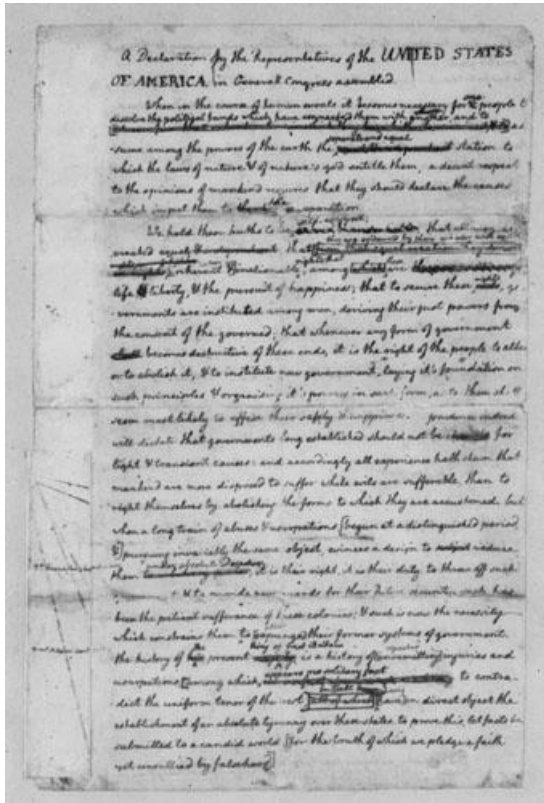 A Declaration by the Representatives of the UNITED STATES
OF AMERICA, in General Congress assembled.
When in the course of human events it becomes necessary for one people to
dissolve the political bands which have connected them with another, and to
assume among the powers of the earth the
separate and equal
station to
which the laws of nature & of nature's god entitle them, a decent respect
to the opinions of mankind requires that they should declare the causes
which impel them to the separation.
We hold these truths to be
self-evident;
that all men are
created equal
that
they are endowed by their creator with
inherent & inalienable
rights; that
among
these
are
life, liberty, & the pursuit of happiness; that to secure these
rights
go-
vernments are instituted among men, deriving their just powers from
the consent of the governed; that whenever any form of government
becomes destructive of these ends, it is the right of the people to alter
or to abolish it, & to institute new government, laying it's foundation on
such principles & organising it's powers in such form, as to them shall
seem most likely to effect their safety & happiness. prudence indeed
will dictate that governments long established should not be changed for
light & transient causes: and accordingly all experience hath shewn that
mankind are more disposed to suffer while evils are sufferable, than to
right themselves by abolishing the forms to which they are accustomed. but
when a long train of abuses & usurpations [begun at a distinguished period,
&] pursuing invariably the same object, evinces a design to reduce
them
under absolute Despotism
it is their right, it is their duty, to throw off such
& to provide new guards for their future security. such has
been the patient sufferance of these colonies; & such is now the necessity
which constrains them to [expunge] their former systems of government.
the history of the present
King of Great Britain
is a history of injuries and
usurpations, [among which,
appears no solitary fact
to contra-
dict the uniform tenor of the rest
all of which
have in direct object the
establishment of an absolute tyranny over these states. to prove this, let facts be
submitted to a candid world [for the truth of which we pledge a faith
yet unsullied by falsehood]